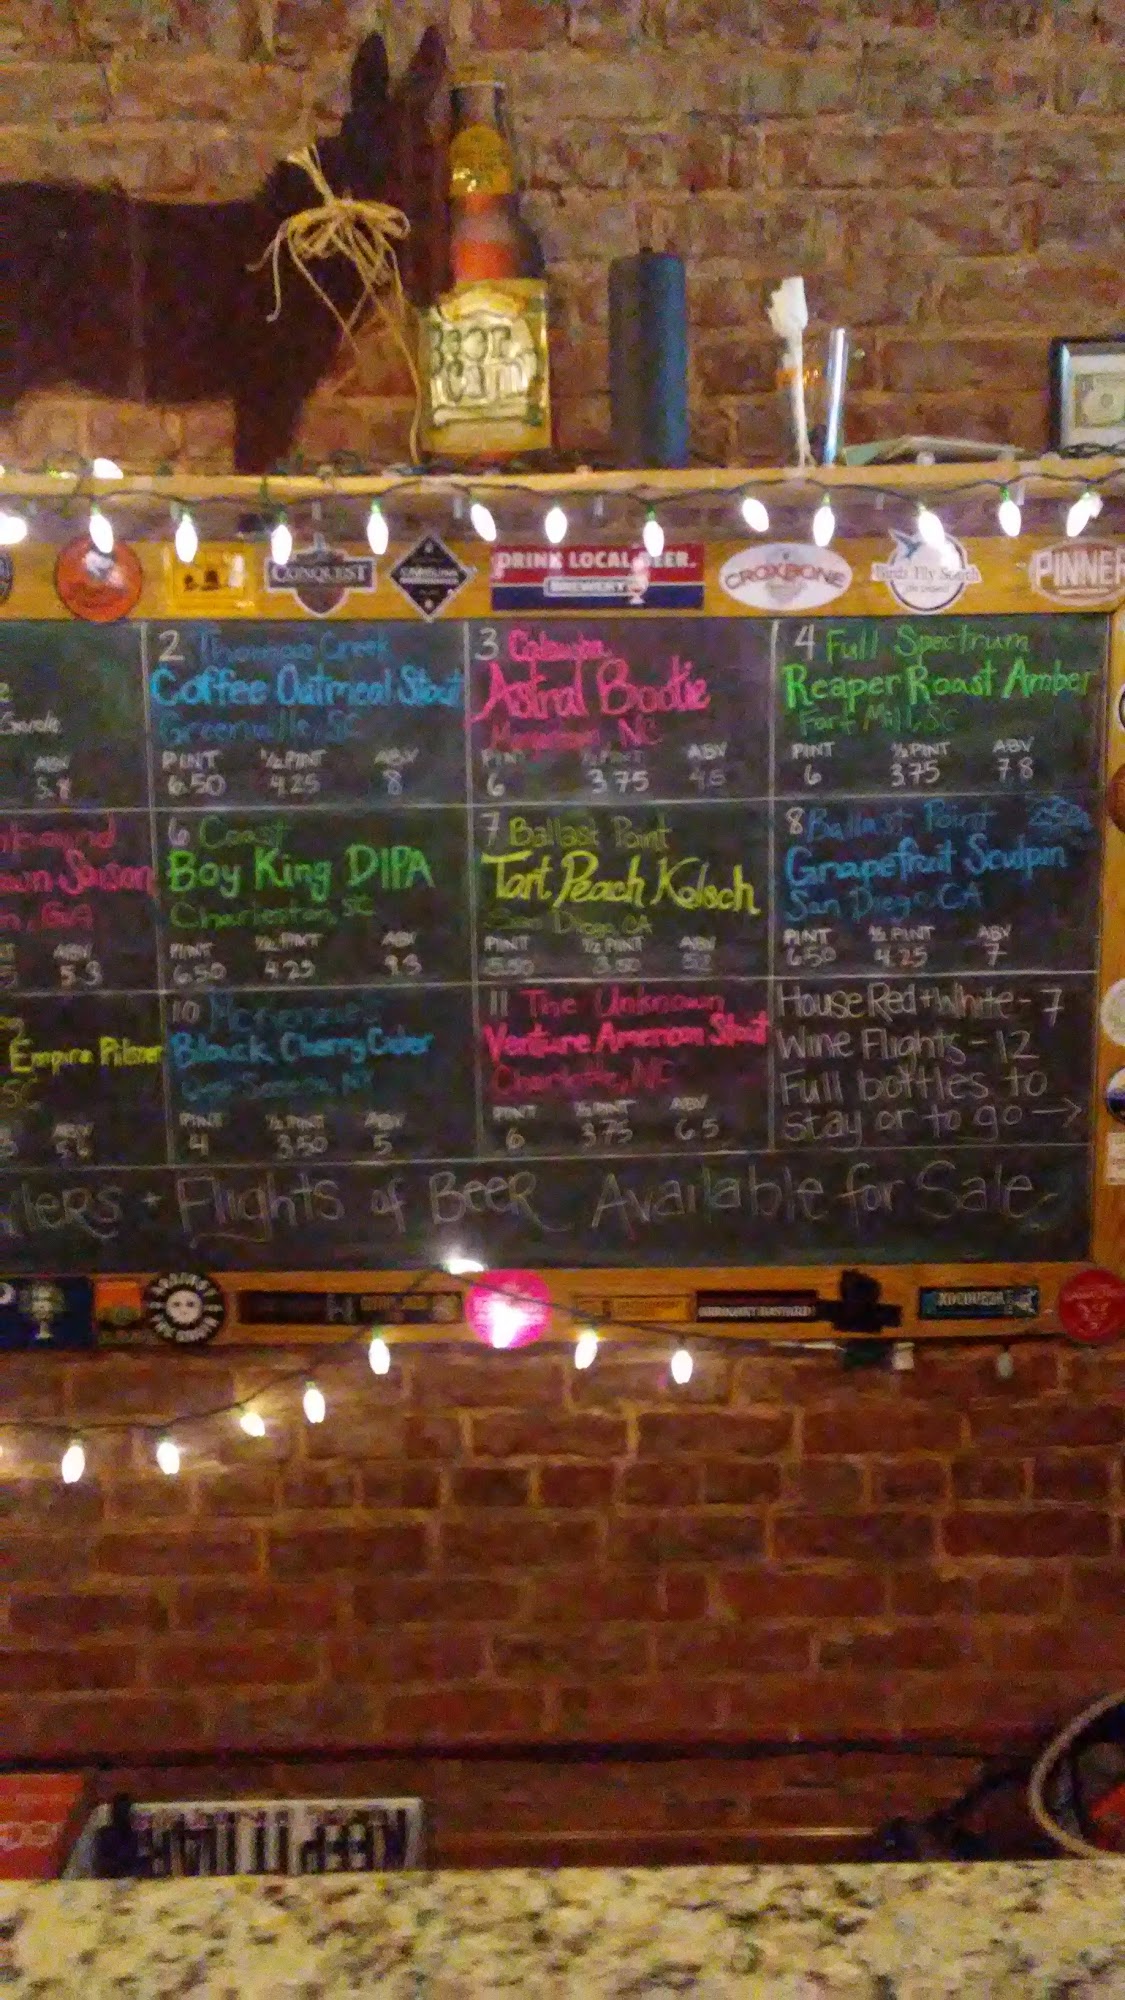 Beer
Camp
CONQUEST
CAROLINA
DRINK LOCAL BEER.
BREWERY
CROXBONE
Birds Fly South
PINNER
ABV
5.8
2 Thomas Creek
Coffee Oatmeal Stout
Greenville, SC
PINT 1/2 PINT ABV
6.50 4.25 8
3 Catawba
Astral Bootie
Morganton, NC
PINT 1/2 PINT ABV
6 3.75 4.5
4 Full Spectrum
Reaper Roast Amber
Fort Mill, SC
PINT 1/2 PINT ABV
6 3.75 7.8
Saison
, GA
ABV
5.3
6 Coast
Boy King DIPA
Charleston, SC
PINT 1/2 PINT ABV
6.50 4.25 9.3
7 Ballast Point
Tart Peach Kolsch
San Diego, CA
PINT 1/2 PINT ABV
5.50 3.50 5.2
8 Ballast Point
Grapefruit Sculpin
San Diego, CA
PINT 1/2 PINT ABV
6.50 4.25 7
Empire Pilsner
SC
ABV
5.6
10 McKenzie's
Black Cherry Cider
West Seneca, NY
PINT 1/2 PINT ABV
4 3.50 5
11 The Unknown
Venture American Stout
Charlotte, NC
PINT 1/2 PINT ABV
6 3.75 6.5
House Red + White - 7
Wine Flights - 12
Full bottles to
stay or to go →
lers + Flights of BEER Available for Sale
AGAINST
THE GRAIN
KEEP IT